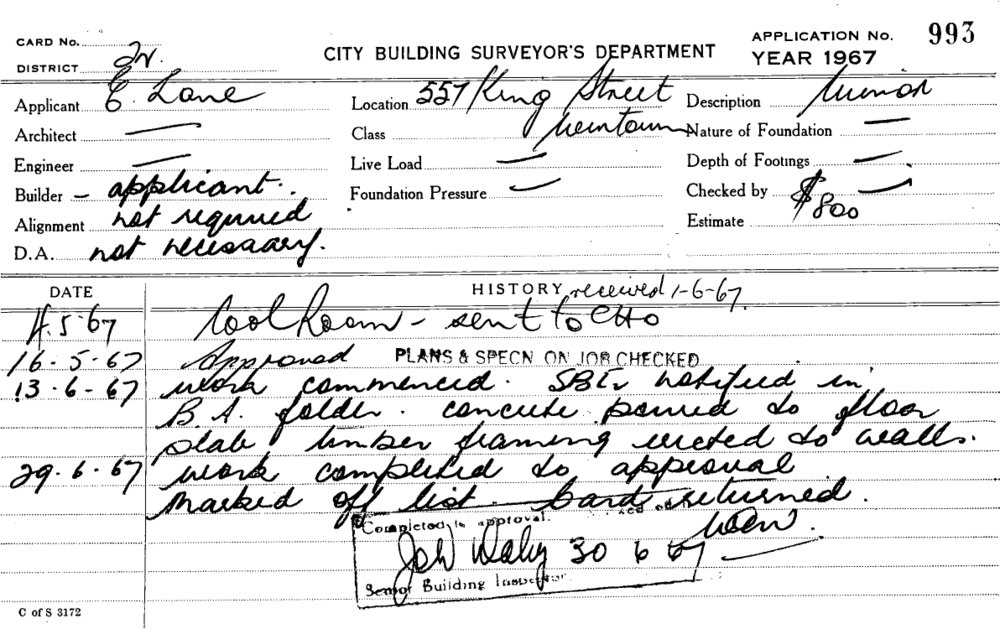 CARD No.
DISTRICT
CITY BUILDING SURVEYOR'S DEPARTMENT
APPLICATION No. 993
YEAR 1967
Applicant E. Lane
Location 557 King Street
Newtown
Description Minor
Architect —
Class
Nature of Foundation —
Engineer —
Live Load —
Depth of Footings —
Builder — applicant.
Foundation Pressure —
Checked by —
Alignment not required
Estimate $800
D.A. not necessary.
DATE
HISTORY received 1-6-67.
4.5.67 Cool Room - sent to CHO
16.5.67 Approved PLANS & SPECN ON JOB CHECKED
13.6.67 work commenced. SBI notified in
B.A. folder. concrete poured to floor
slab timber framing erected to walls.
29.6.67 work completed to approval
marked off list card returned.
Completed to approval.
30 6 67
Senior Building Inspector.
C of S 3172